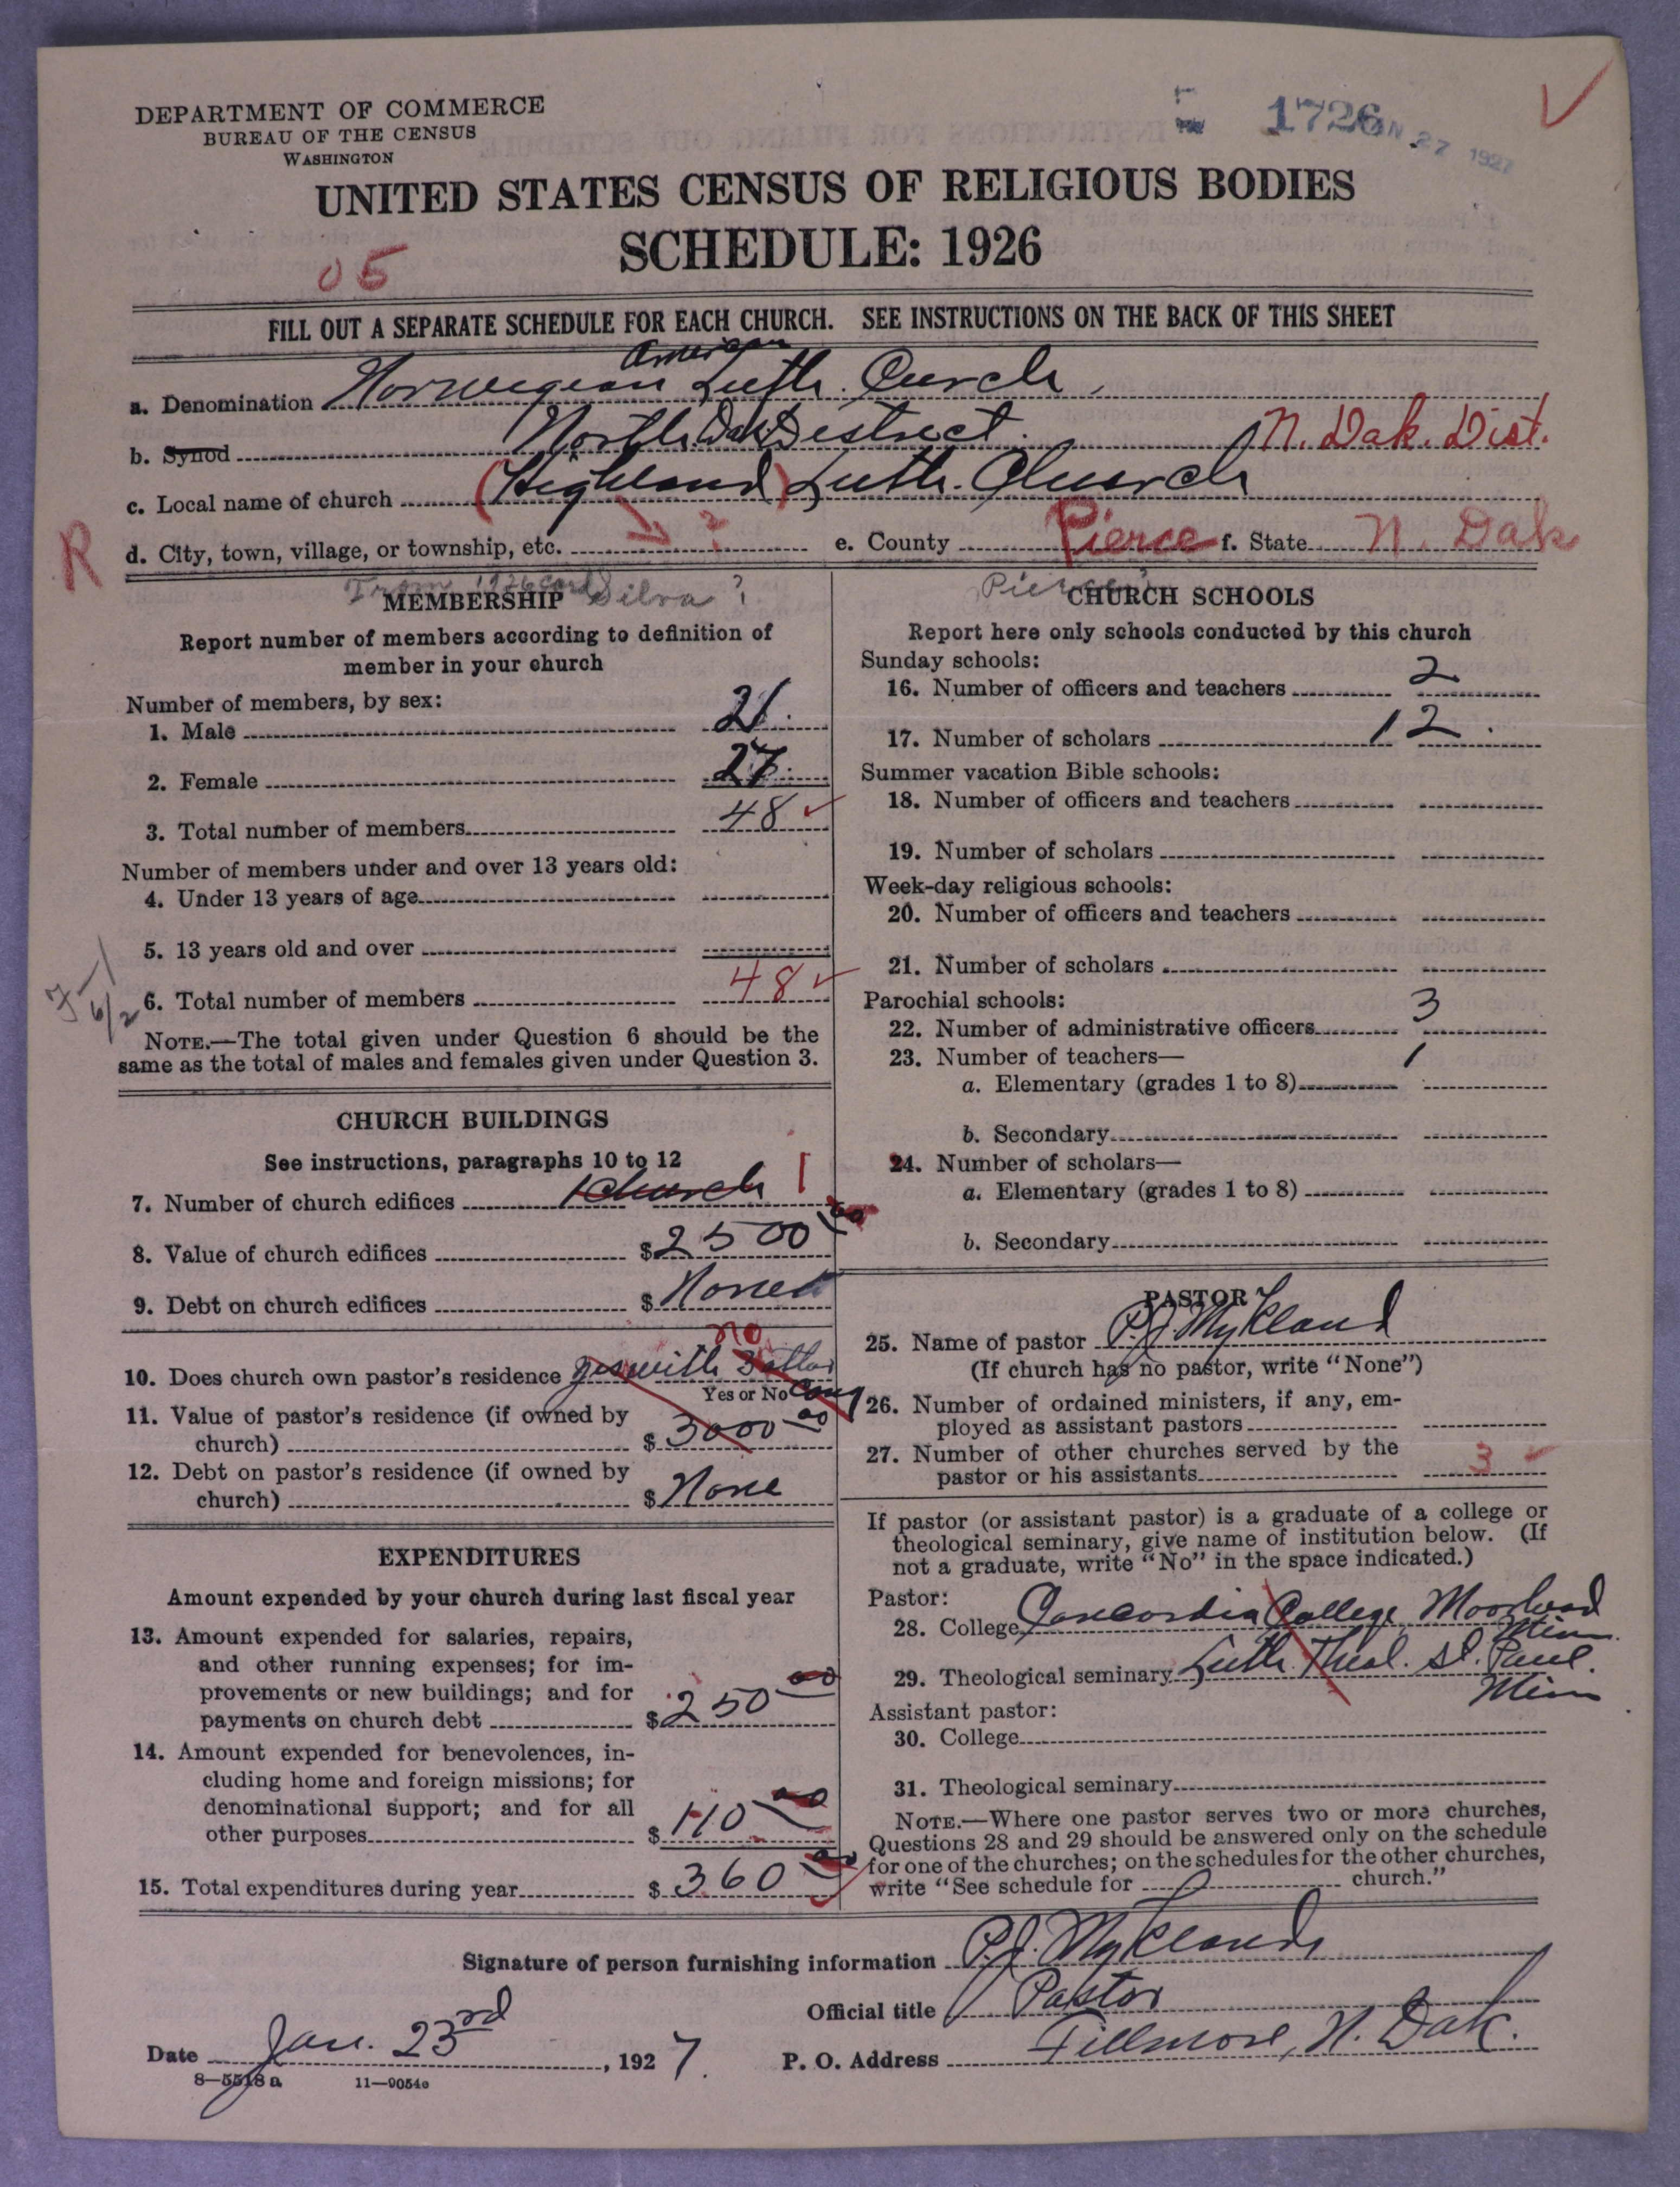 DEPARTMENT OF COMMERCE
BUREAU OF THE CENSUS
WASHINGTON
1726
JAN 27 1927
UNITED STATES CENSUS OF RELIGIOUS BODIES
SCHEDULE: 1926
05
FILL OUT A SEPARATE SCHEDULE FOR EACH CHURCH. SEE INSTRUCTIONS ON THE BACK OF THIS SHEET
American
a. Denomination Norwegian Luth. Curch,
b. Synod North Dak District. N. Dak. Dist.
c. Local name of church (Highland) Luth. Church
R d. City, town, village, or township, etc. ? e. County Pierce f. State N. Dak
From 1926 card Silva? Pierce
MEMBERSHIP
Report number of members according to definition of
member in your church
Number of members, by sex:
1. Male 21.
2. Female 27.
3. Total number of members 48
Number of members under and over 13 years old:
4. Under 13 years of age
5. 13 years old and over
6. Total number of members 48
NOTE.—The total given under Question 6 should be the
same as the total of males and females given under Question 3.
CHURCH BUILDINGS
See instructions, paragraphs 10 to 12
7. Number of church edifices 1 church 1
8. Value of church edifices $ 2500 00
9. Debt on church edifices $ None
no
10. Does church own pastor's residence yes with 3 other
Yes or No Cong
11. Value of pastor's residence (if owned by
church) $ 3000 00
12. Debt on pastor's residence (if owned by
church) $ None
EXPENDITURES
Amount expended by your church during last fiscal year
13. Amount expended for salaries, repairs,
and other running expenses; for im-
provements or new buildings; and for
payments on church debt $ 250 00
14. Amount expended for benevolences, in-
cluding home and foreign missions; for
denominational support; and for all
other purposes $ 110 00
15. Total expenditures during year $ 360 00
CHURCH SCHOOLS
Report here only schools conducted by this church
Sunday schools:
16. Number of officers and teachers 2
17. Number of scholars 12.
Summer vacation Bible schools:
18. Number of officers and teachers
19. Number of scholars
Week-day religious schools:
20. Number of officers and teachers
21. Number of scholars
Parochial schools:
22. Number of administrative officers 3
23. Number of teachers— 1
a. Elementary (grades 1 to 8)
b. Secondary
24. Number of scholars—
a. Elementary (grades 1 to 8)
b. Secondary
PASTOR
25. Name of pastor P.J. Mykland
(If church has no pastor, write "None")
26. Number of ordained ministers, if any, em-
ployed as assistant pastors
27. Number of other churches served by the
pastor or his assistants 3
If pastor (or assistant pastor) is a graduate of a college or
theological seminary, give name of institution below. (If
not a graduate, write "No" in the space indicated.)
Pastor:
28. College Concordia College, Moorhead
Minn.
29. Theological seminary Luth. Theol. St. Paul.
Minn
Assistant pastor:
30. College
31. Theological seminary
NOTE.—Where one pastor serves two or more churches,
Questions 28 and 29 should be answered only on the schedule
for one of the churches; on the schedules for the other churches,
write "See schedule for church."
Signature of person furnishing information P.J. Mykland
Official title Pastor
Date Jan. 23rd, 1927. P. O. Address Fillmore, N. Dak.
8—5518 a 11—9054c